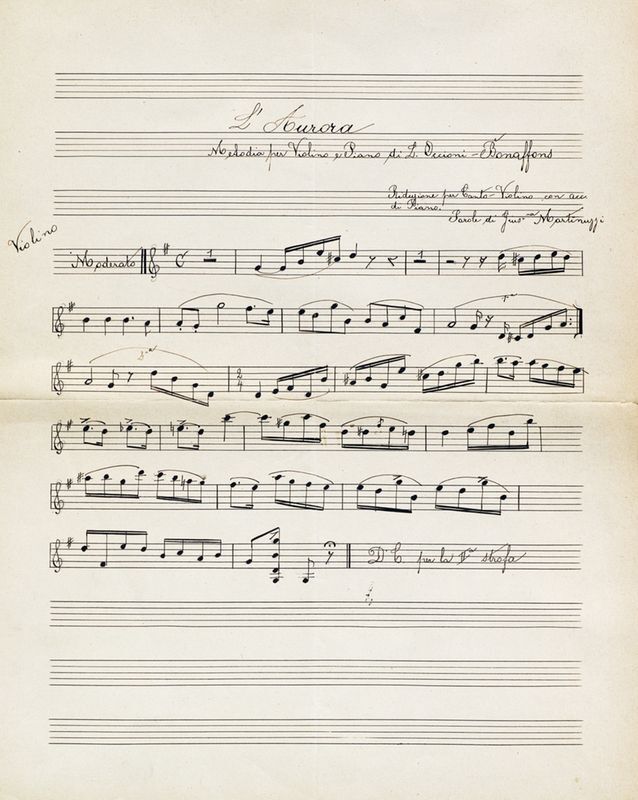 L'Aurora
Melodia per Violino e Piano di L. Occioni-Bonaffons
Riduzione per Canto-Violino con acc
di Piano.
Parole di Gius.na Martinuzzi
Violino
Moderato
1 1
1a
2a
2
4
D. C. per la IIa strofa